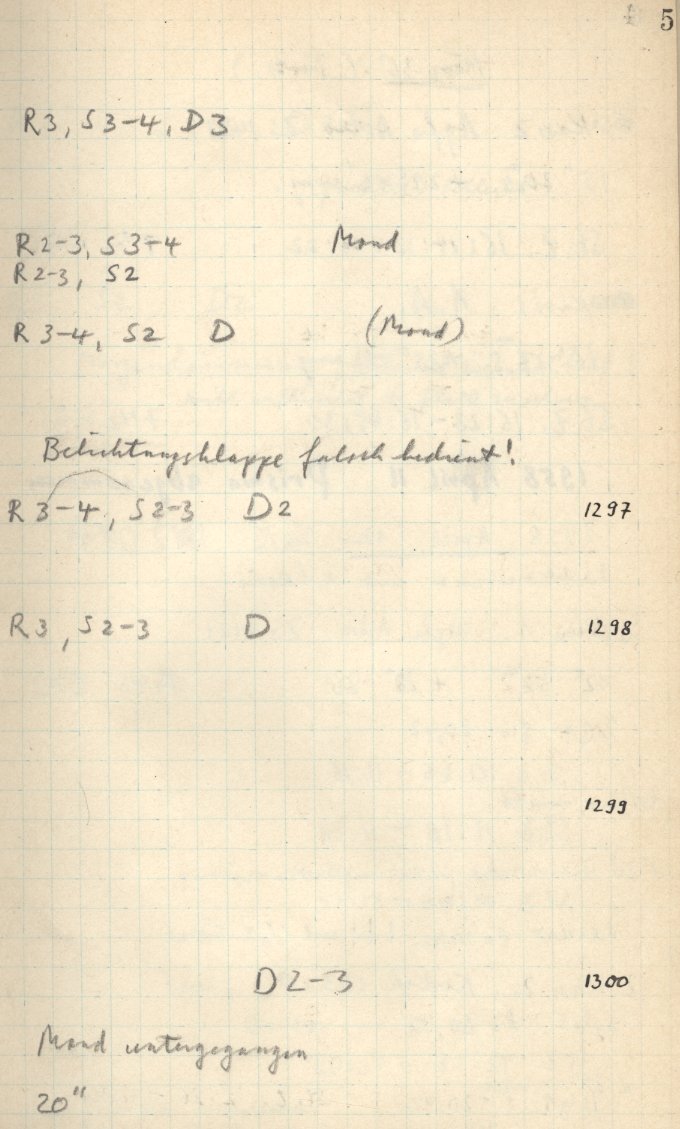 5
R3, S3-4, D3
R2-3, S3-4 Mond
R2-3, S2
R 3-4, S2 D (Mond)
Belichtungsklappe falsch bedient!
R 3-4, S2-3 D2 1297
R3, S2-3 D 1298
1299
D2-3 1300
Mond untergegangen
20"